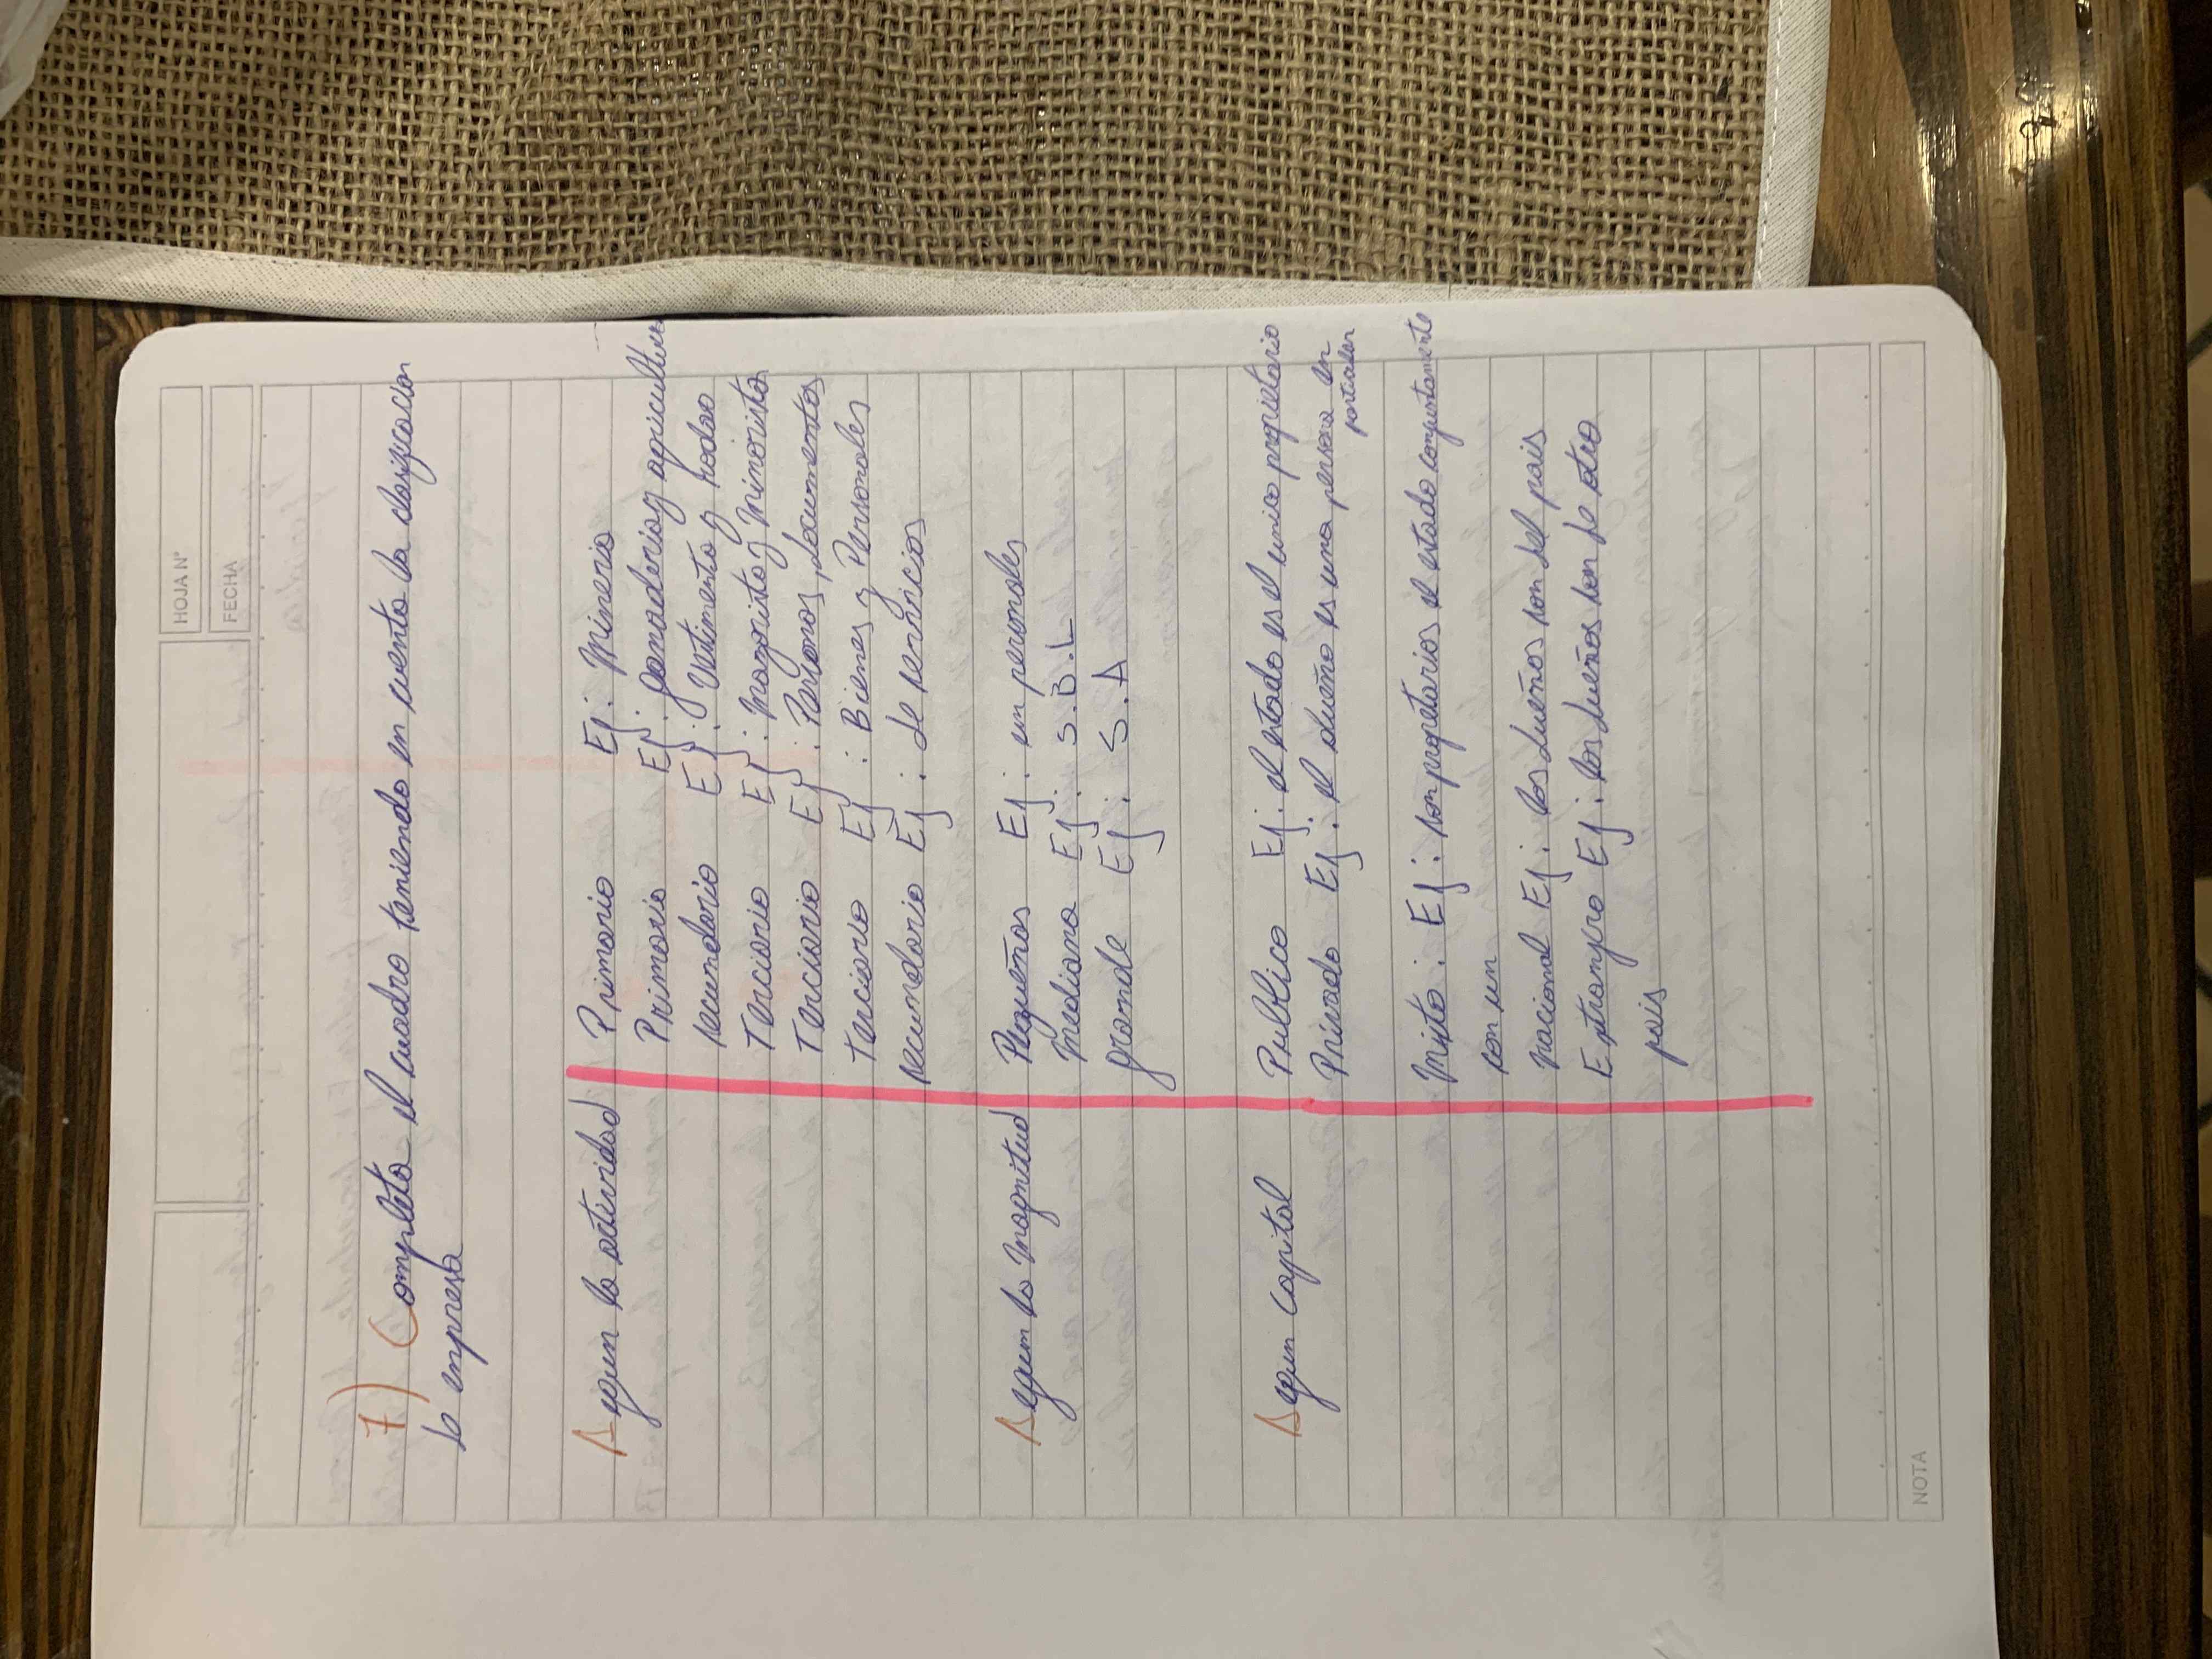 HOJA N°
FECHA
7) Completa el cuadro teniendo en cuenta la clasificacion
la empresa
Segun la actividad
Primario Ej: Mineria
Primario Ej: ganaderia y agricultura
secundario Ej: Vestimenta y rodao
Terciario Ej: Mayorista y Minorista
Terciario Ej: Personas, documentos
Terciario Ej: Bienes y Personales
secundario Ej: de servicios
Segun la Magnitud
Pequeñas Ej: un personales
mediana Ej: S.B.L
grande Ej: S.A
Segun Capital
Publico Ej: el estado es el unico propietario
Privado Ej: el dueño es una persona en
particular
Mixto: Ej: son propetarios el estado conjuntamente
con un
nacional Ej: los dueños son del pais
Extranyero Ej: los dueños son de otro
pais
NOTA